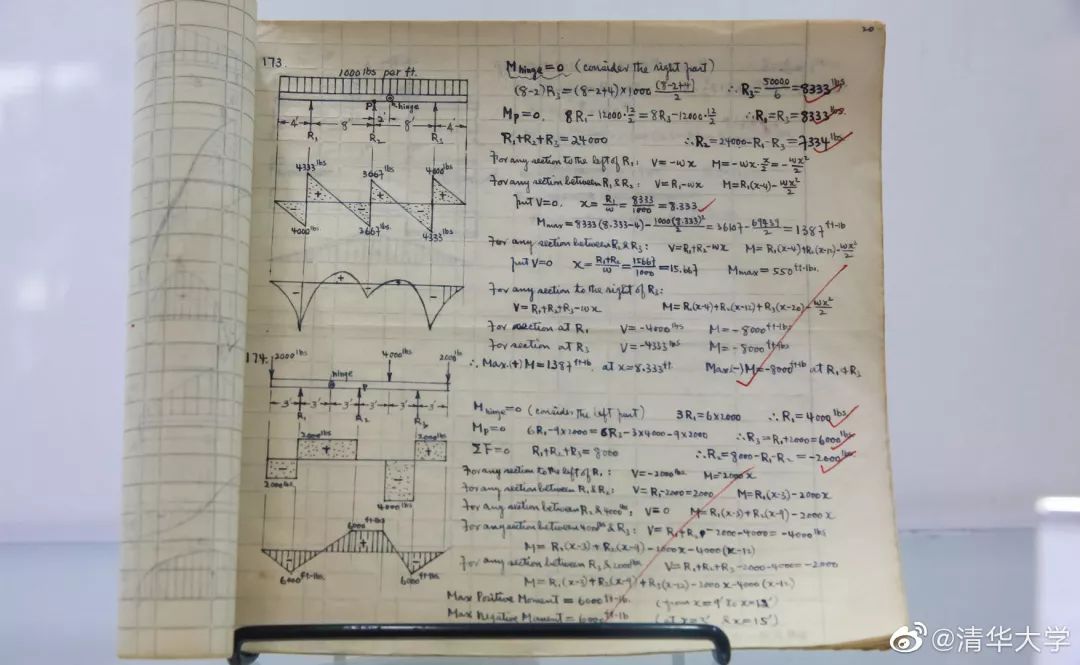 20
173.
1000 lbs per ft.
P
hinge
2'
4' 8' 8' 4'
R₁ R₂ R₃
4333 lbs
3667 lbs
4000 lbs
+ + +
- - -
4000 lbs
3667 lbs
4333 lbs
- + + -
M hinge = 0 (consider the right part)
(8-2)R₃ = (8-2+4)×1000 (8-2+4)/2 ∴ R₃ = 50000/6 = 8333 lbs
Mp = 0. 8R₁ - 12000·12/2 = 8R₃ - 12000·12/2 ∴ R₁ = R₃ = 8333 lbs.
R₁+R₂+R₃ = 24000 ∴ R₂ = 24000-R₁-R₃ = 7334 lbs
For any section to the left of R₁: V=-wx M=-wx·x/2=-wx²/2
For any section between R₁ & R₂: V=R₁-wx M=R₁(x-4)-wx²/2
put V=0. x = R₁/w = 8333/1000 = 8.333
Mmax = 8333(8.333-4) - 1000(8.333)²/2 = 36107 - 69439/2 = 1387 ft-lb
For any section between R₂ & R₃: V=R₁+R₂-wx M=R₁(x-4)+R₂(x-12)-wx²/2
put V=0 x = R₁+R₂/w = 15667/1000 = 15.667 Mmax = 550 ft-lbs.
For any section to the right of R₃:
V=R₁+R₂+R₃-wx M=R₁(x-4)+R₂(x-12)+R₃(x-20)-wx²/2
For section at R₁ V=-4000 lbs M=-8000 ft-lbs
For section at R₃ V=-4333 lbs M=-8000 ft-lb
∴ Max.(+) M = 1387 ft-lb. at x=8.333 ft. Max(-) M=-8000 ft-lb at R₁ & R₃
174.
2000 lbs 4000 lbs 2000 lb
hinge P
3' 3' 3' 3' 3' 3'
R₁ R₂ R₃
2000 lbs
2000 lbs
+ +
- -
2000 lbs.
4000 lbs
6000 ft-lbs
- + -
6000 ft-lbs.
6000 ft-lbs.
M hinge = 0 (consider the left part) 3R₁ = 6×2000 ∴ R₁ = 4000 lbs
Mp = 0 6R₁-9×2000 = 6R₃-3×4000-9×2000 ∴ R₃ = R₁+2000 = 6000 lbs
ΣF=0 R₁+R₂+R₃ = 8000 ∴ R₂ = 8000-R₁-R₂ = -2000 lbs
For any section to the left of R₁: V=-2000 lbs. M=-2000x
For any section between R₁ & R₂: V=R₁-2000=2000 M=R₁(x-3)-2000x
For any section between R₂ & 4000 lbs: V=0 M=R₁(x-3)+R₂(x-9)-2000x
For any section between 4000 lbs & R₃: V=R₁+R₂-2000-4000=-4000 lbs
M=R₁(x-3)+R₂(x-9)-2000x-4000(x-12)
For any section between R₃ & 2000 lbs. V=R₁+R₂+R₃-2000-4000=-2000
M=R₁(x-3)+R₂(x-9)+R₃(x-12)-2000x-4000(x-12)
Max Positive Moment = 6000 ft-lb. (from x=9' to x=12')
Max Negative Moment = 6000 ft-lb (at x=3' & x=15')
@清华大学